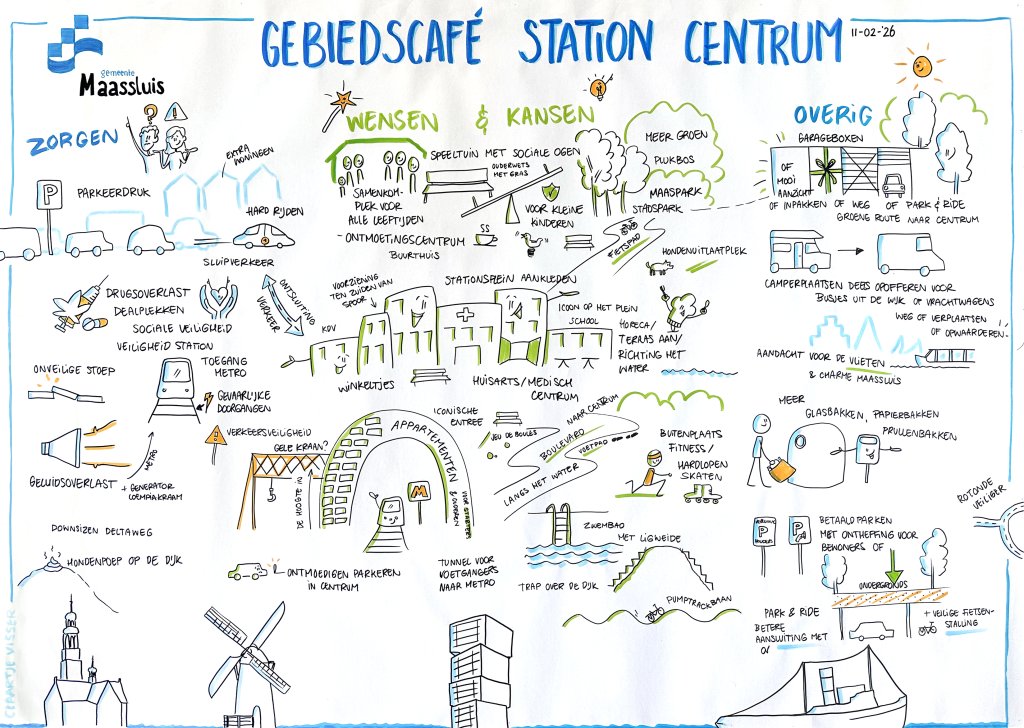 GEBIEDSCAFÉ STATION CENTRUM
11-02-'26
gemeente
Maassluis
ZORGEN
?
!
EXTRA
WONINGEN
P
PARKEERDRUK
HARD RIJDEN
SLUIPVERKEER
ONTSLUITING
VERKEER
DRUGSOVERLAST
DEALPLEKKEN
SOCIALE VEILIGHEID
VEILIGHEID STATION
ONVEILIGE STOEP
TOEGANG
METRO
GEVAARLIJKE
DOORGANGEN
VERKEERSVEILIGHEID
METRO
GELUIDSOVERLAST
+ GENERATOR
LOEMPIAKRAAM
DOWNSIZEN DELTAWEG
HONDENPOEP OP DE DIJK
WENSEN & KANSEN
SPEELTUIN MET SOCIALE OGEN
OUDERWETS
MET GRAS
SAMENKOM-
PLEK VOOR
ALLE LEEFTIJDEN
VOOR KLEINE
KINDEREN
- ONTMOETINGSCENTRUM
BUURTHUIS
MEER GROEN
PLUKBOS
MAASPARK
STADSPARK
FIETSPAD
HONDENUITLAATPLEK
VOORZIENING
TEN ZUIDEN VAN
SPOOR
STATIONSPLEIN AANKLEDEN
ICOON OP HET PLEIN
SCHOOL
KDV
HORECA/
TERRAS AAN/
RICHTING HET
WATER
WINKELTJES
HUISARTS/MEDISCH
CENTRUM
GELE KRAAN?
DE HOOGTE IN
APPARTEMENTEN
VOOR STARTERS
& OUDEREN
M
ICONISCHE
ENTREE
JEU DE BOULES
NAAR CENTRUM
BOULEVARD
VOETPAD
LANGS HET WATER
BUITENPLAATS
FITNESS/
HARDLOPEN
SKATEN
ZWEMBAD
MET LIGWEIDE
TRAP OVER DE DIJK
PUMPTRACKBAAN
- ONTMOEDIGEN PARKEREN
IN CENTRUM
TUNNEL VOOR
VOETGANGERS
NAAR METRO
OVERIG
GARAGEBOXEN
OF
MOOI
AANZICHT
OF INPAKKEN
OF WEG
GROENE ROUTE
OF PARK & RIDE
NAAR CENTRUM
CAMPERPLAATSEN DEELS OPOFFEREN VOOR
BUSJES UIT DE WIJK OF VRACHTWAGENS
WEG OF VERPLAATSEN
OF OPWAARDEREN!
AANDACHT VOOR DE VLIETEN
& CHARME MAASSLUIS
MEER
GLASBAKKEN, PAPIERBAKKEN
PRULLENBAKKEN
ROTONDE
VEILIGER
P
P
BETAALD PARKEN
MET ONTHEFFING VOOR
BEWONERS OF
ONDERGRONDS
PARK & RIDE
BETERE
AANSLUITING MET
OV
+ VEILIGE FIETSEN-
STALLING
GERARTJE VISSER